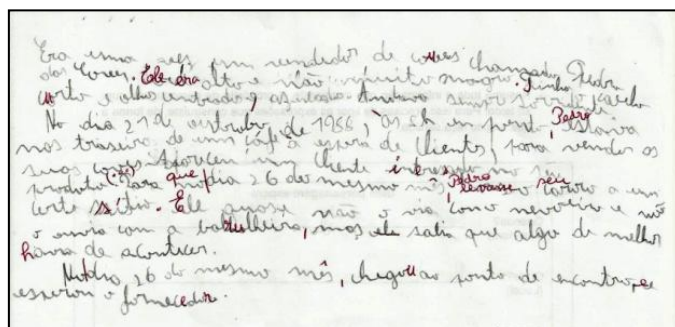 Era uma vez um vendedor de cores chamado Pedro
das Cores. Ele era alto e não muito magro. Tinha cabelo
curto e olho centrado, azulado. Andava sempre sorridente.
No dia 21 de outubro de 1966, às 5h em ponto, Pedro estava
nas traseiras de um café à espera de clientes, para vender as
suas cores. Apareceu um cliente interessado no seu
produto (...) para que no dia 26 do mesmo mês, Pedro levasse seu carro a um
certo sítio. E ele quase não o via, com o nevoeiro e não
o ouvia com a barulheira, mas ele sabia que algo de melhor
havia de acontecer.
No dia 26 do mesmo mês, chegou ao ponto de encontro, e
esperou o fornecedor.